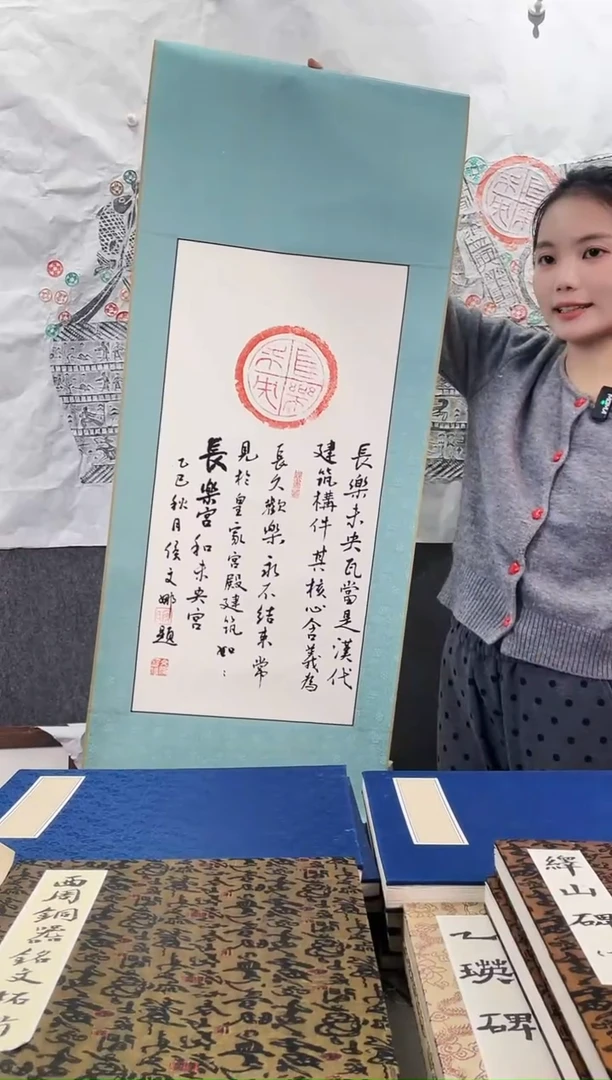 長樂未央
長樂未央瓦當是漢代
建筑構件其核心含義為
長久歡樂永不结束常
見於皇家宮殿建筑如：
長樂宮和未央宮
乙巳秋月侯文娜題
西周銅器銘文拓片
乙瑛碑
繹山碑